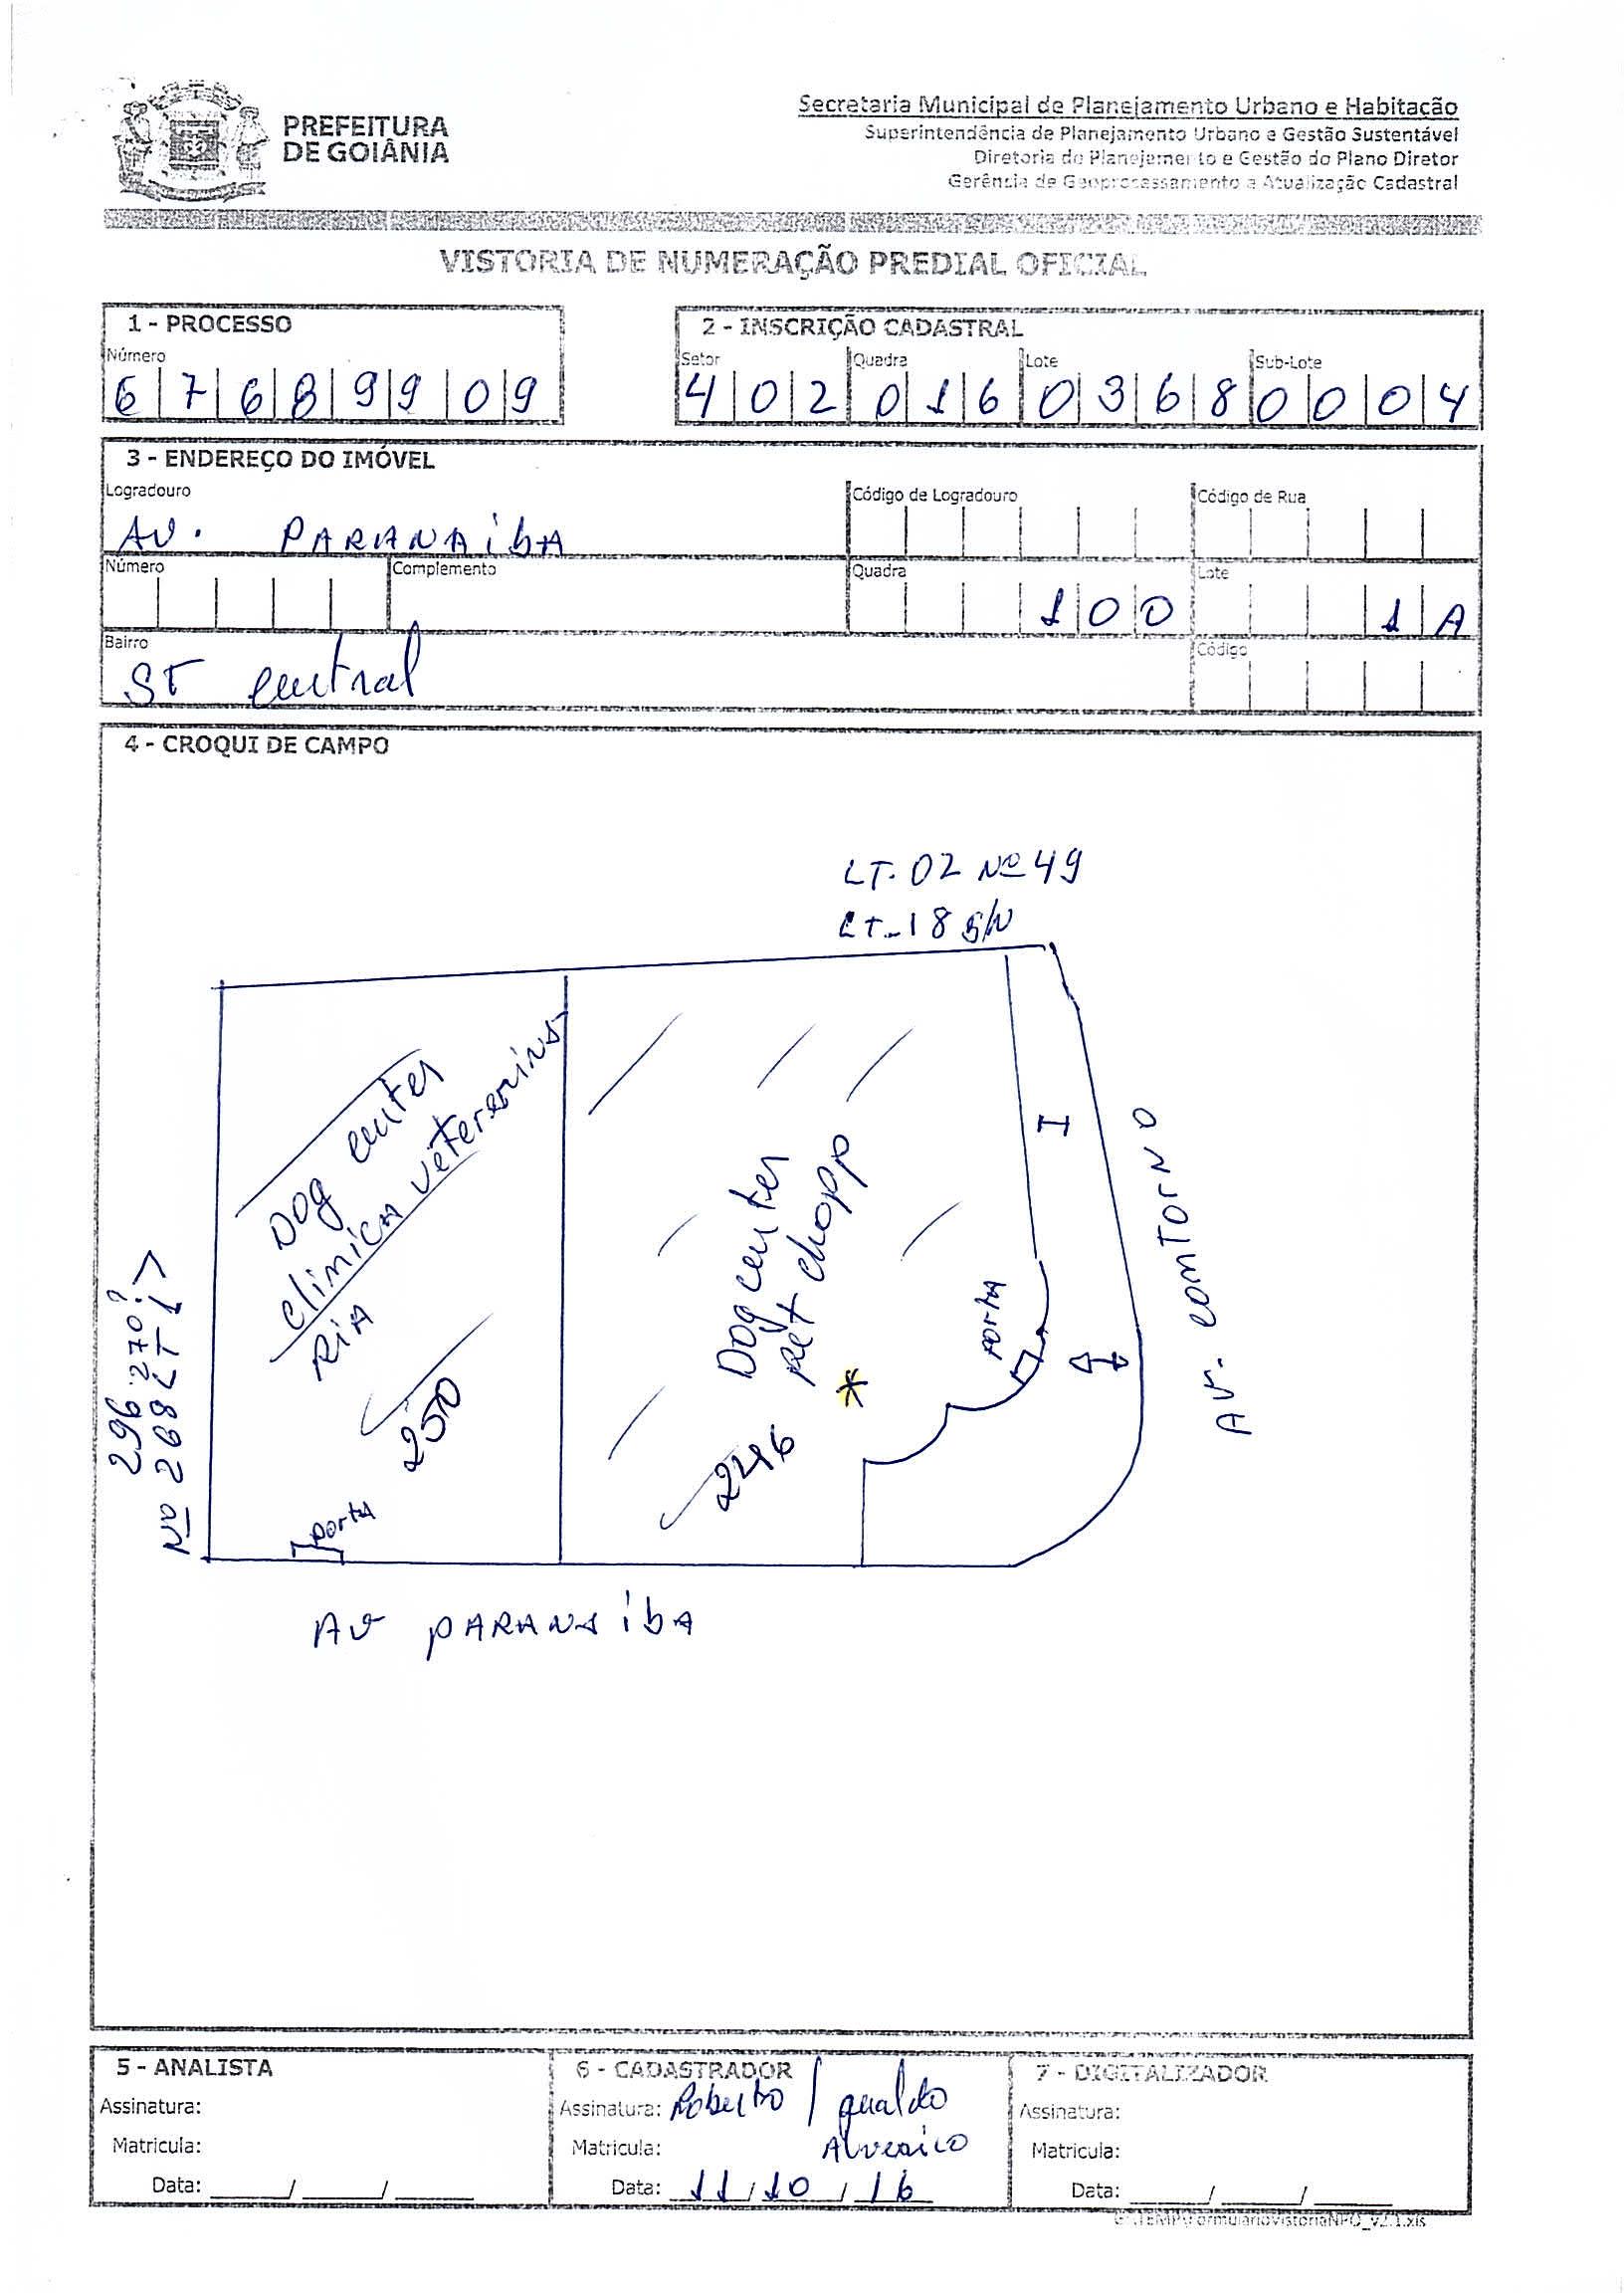 PREFEITURA
DE GOIÂNIA
Secretaria Municipal de Planejamento Urbano e Habitação
Superintendência de Planejamento Urbano e Gestão Sustentável
Diretoria de Planejamento e Gestão do Plano Diretor
Gerência de Geoprocessamento e Atualização Cadastral
VISTORIA DE NUMERAÇÃO PREDIAL OFICIAL
1 - PROCESSO
Número
6 7 6 8 9 9 0 9
2 - INSCRIÇÃO CADASTRAL
Setor Quadra Lote Sub-Lote
4 0 2 0 1 6 0 3 6 8 0 0 0 4
3 - ENDEREÇO DO IMÓVEL
Logradouro Código de Logradouro Código de Rua
AV. PARANAíbA
Número Complemento Quadra Lote
1 0 0 1 A
Bairro Código
ST central
4 - CROQUI DE CAMPO
LT. 02 Nº 49
LT-18 S/N
Dog center
clinica veterenins
RIA
250
porta
296 270?
Nº 268 LT 1
Dog center
pet chopp
2246
porta
I
AV. comTorNO
AV PARANAibA
5 - ANALISTA
Assinatura:
Matricula:
Data: ____/____/____
6 - CADASTRADOR
Assinatura: Roberto / Alverico
Matricula:
Data: 11/10/16
7 - DIGITALIZADOR
Assinatura:
Matricula:
Data: ____/____/____
G:\TEMP\FormularioVistoriaNPO_v2.1.xls